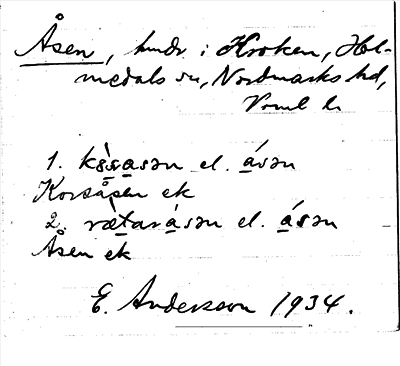 Åsen, hmdr i Kroken, Hol-
medals sn, Nordmarks hd,
Vrml l.
1. kòrsasən el. ásən
Korsåsen ek
2. rætarásən el. ásən
Åsen ek
E. Andersson 1934.